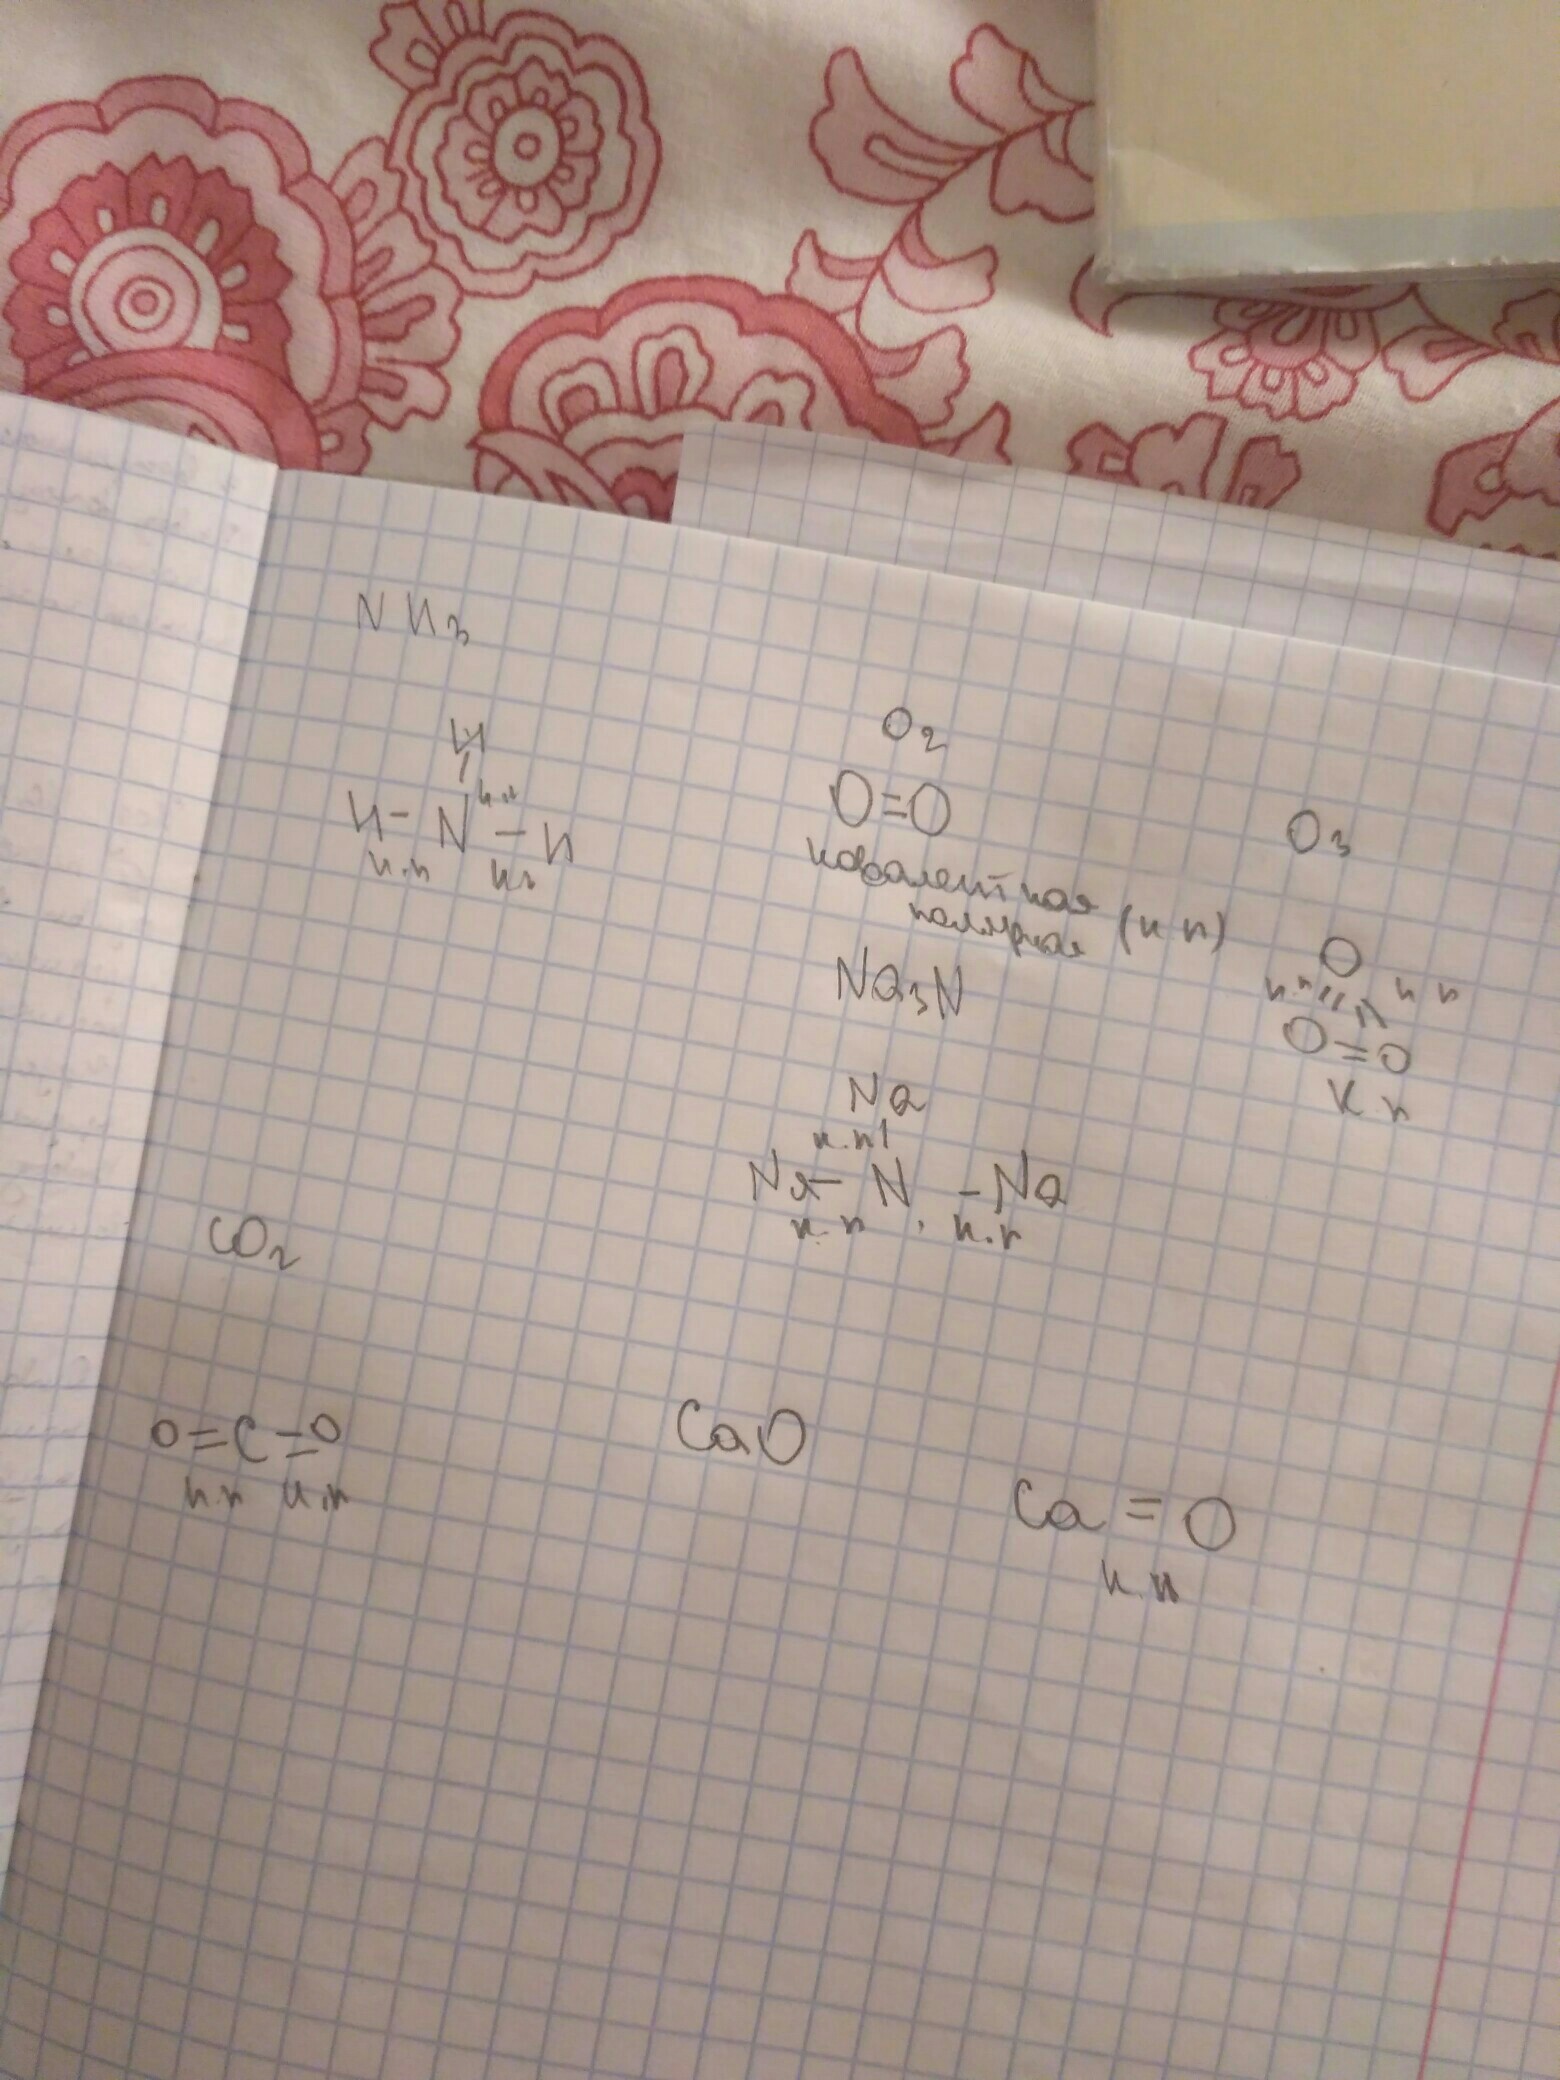 NH₃
H
к.п
H - N - H
к.п к.п
O₂
O=O
ковалентная
полярная (к п)
O₃
O
к п к п
O=O
К п
Na₃N
Na
к.п
Na - N - Na
к.п к.п
CO₂
O=C=O
к.п к.п
CaO
Ca = O
к.п